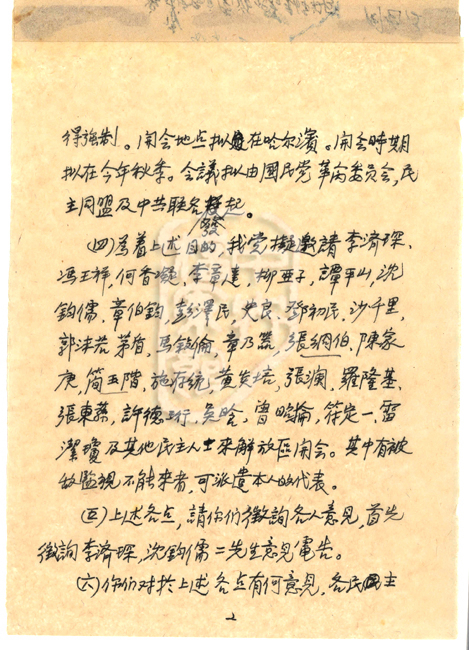 得強制。開会地点拟在哈尔濱。開会時期
拟在今年秋季。会議拟由國民党革命委員会,民
主同盟及中共联名發起。
(四)為着上述目的,我党擬邀請李济琛、
冯玉祥,何香凝,李章達,柳亞子,譚平山,沈
鈞儒、章伯鈞,彭澤民,史良,鄧初民,沙千里,
郭沫若,茅盾,馬敘倫,章乃器,張絅伯,陳家
庚,简玉階,施存統,黄炎培,張瀾,羅隆基、
張東蓀,許德珩,吳晗,曾昭掄,符定一,雷
潔瓊及其他民主人士来解放區開会。其中有被
敌監視不能来者,可派遣本人的代表。
(五)上述各点,請你们徵詢各人意見,首先
徵詢李濟琛,沈鈞儒二先生意見電告。
(六)你们对於上述各点有何意見,各民主
2